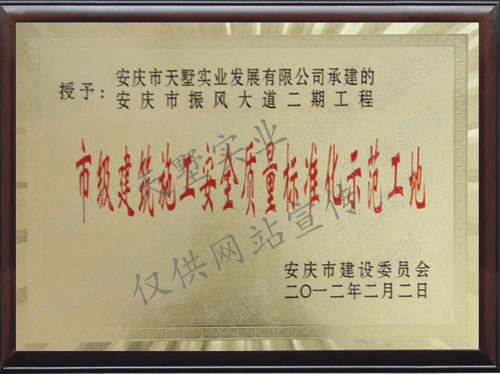 授予：
安庆市天墅实业发展有限公司承建的
安庆市振风大道二期工程
市级建筑施工安全质量标准化示范工地
安庆市建设委员会
二〇一二年二月二日
天墅实业
仅供网站宣传
TIANSHU